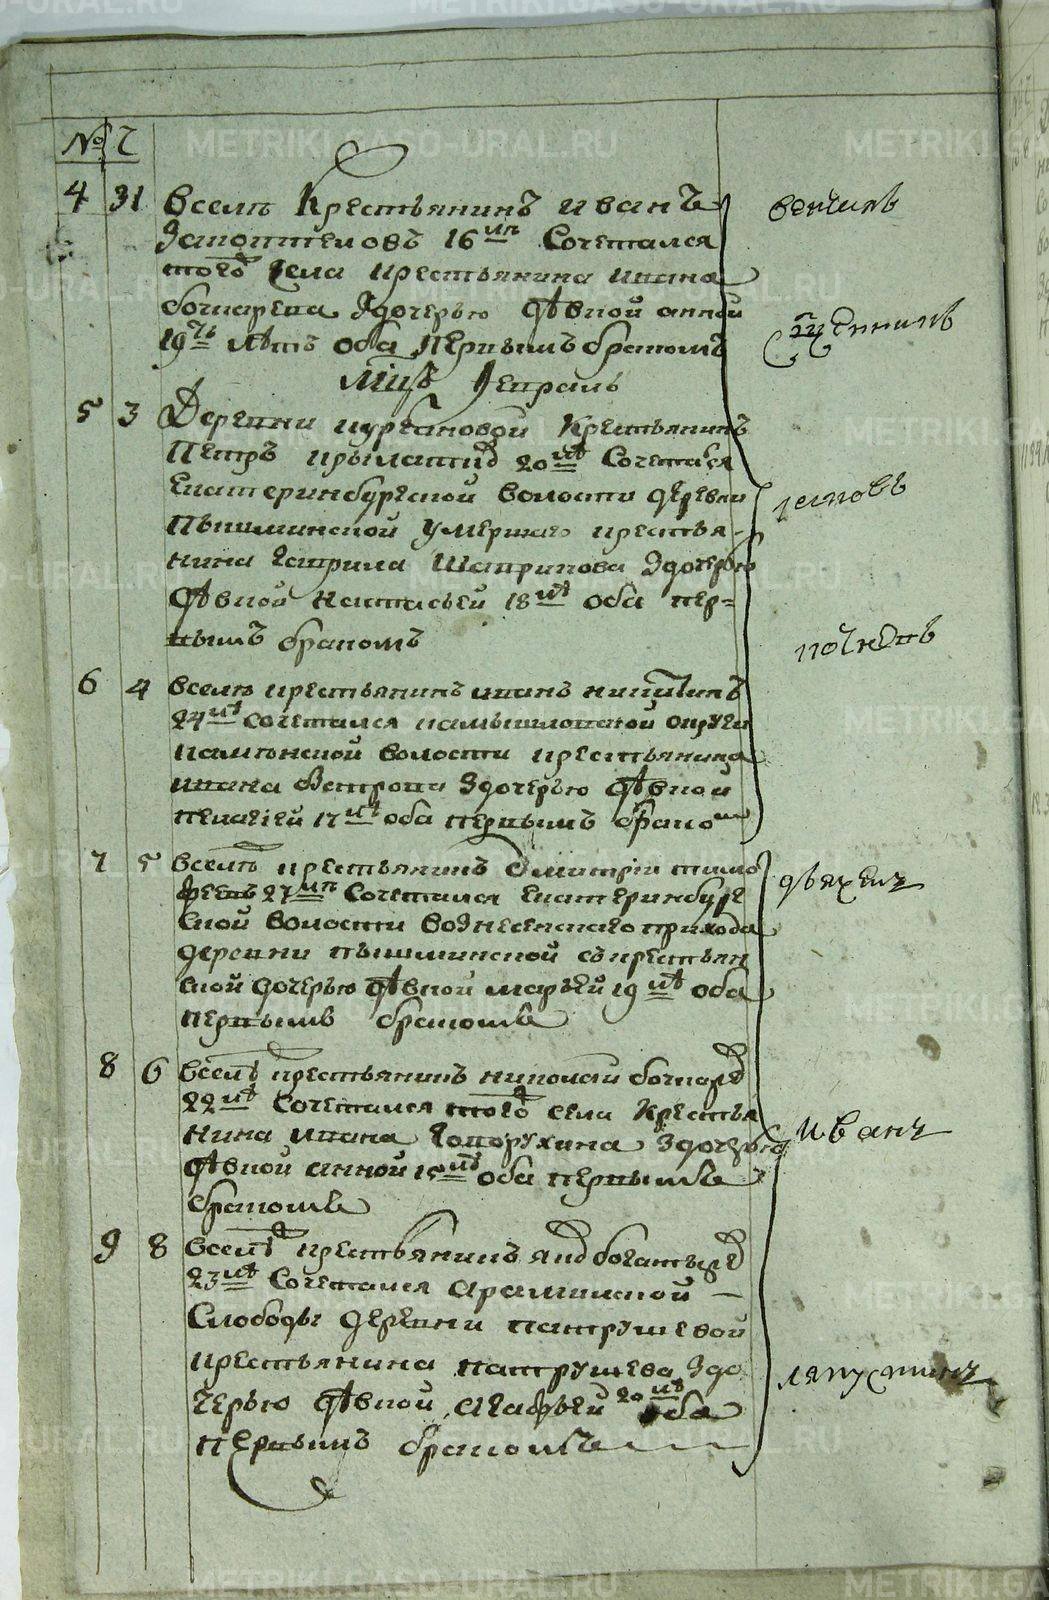 № Ч
4 31 вселѣ Крестьянинъ иванъ
16 лѣ Сочетался
того Села крестьянина ивана
бочкарева здочерью дѣвкой анной
19ть лѣтъ оба первымъ бракомъ
Мцъ февраль
5 3 Деревни кургановой Крестьянинъ
Петръ 20 лѣ Сочетался
Екатеринбургской волости деревни
Пышминской умершаго крестья-
нина гаврила здочерью
дѣвкой настасьей 18 лѣ оба пер=
вымъ бракомъ
6 4 вселѣ крестьянинъ иванъ никитинъ
24 лѣ сочетался камышловской округи
волости крестьянина
ивана здочерью дѣвкой
пелагіей 17 лѣ оба первымъ бракомъ
7 5 вселѣ крестьянинъ Дмитріи тимо
феевъ 27 лѣ Сочетался Екатеринбург
ской волости вознесенского прихода
деревни пышминской съ крестьян
ской дочерью дѣвкой марьей 19 лѣ оба
первымъ бракомъ
8 6 вселѣ крестьянинъ николай бочкаре
22 лѣ Сочетался того села Крестья
нина ивана здочерью
дѣвкой анной лѣ оба первымъ
бракомъ
9 8 вселѣ крестьянинъ яко богатыре
23 лѣ Сочетался арамилской
Слободы деревни патрушевой
крестьянина патрушева здо
черью дѣвкой агафьей 20 лѣ оба
первымъ бракомъ
венчилъ
Сщенникъ
иванъ